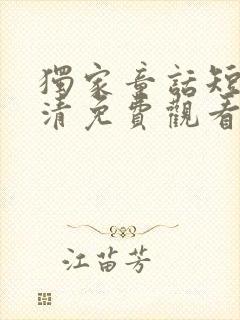 獨家童話短
清免費觀看
江苗芳